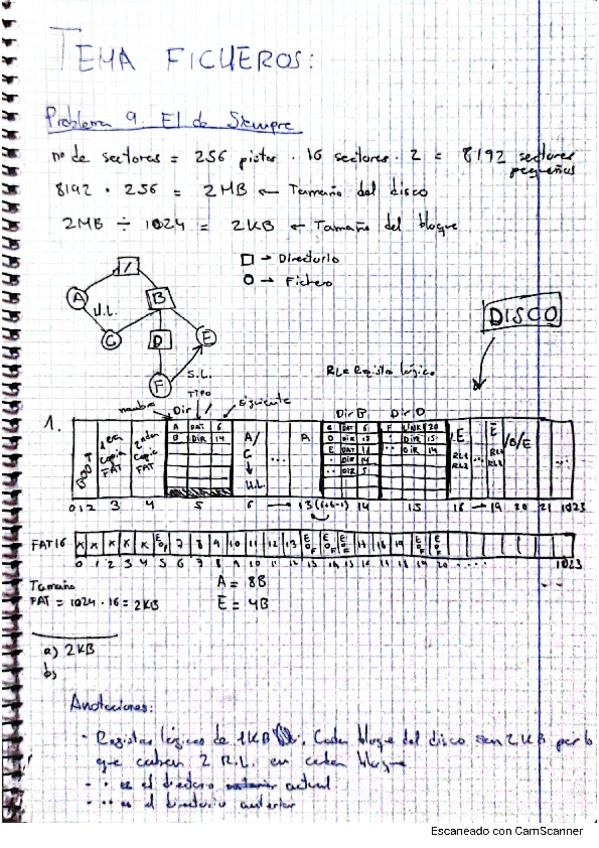 TEMA FICHEROS:
Problema 9. El de Siempre
nº de sectores = 256 pistas · 16 sectores · 2 = 8192 sectores pequeños
8192 · 256 = 2MB ← Tamaño del disco
2MB ÷ 1024 = 2KB ← Tamaño del bloque
□ → Directorio
○ → Fichero
/
A
B
H.L.
C
D
E
F
S.L.
DISCO
RL = Registro lógico
nombre
TIPO
siguiente
Dir /
Dir B
Dir D
1.
1era copia FAT
2nda copia FAT
A DAT 6
B DIR 14
A/
C
↓
...
A
C DAT 6
D DIR 15
.. DIR 5
F LINK 20
. DIR 15
.. DIR 14
E
RL1
RL2
...
E
/B/E
0 1 2 3 4 5 6 → 13 (6+8-1) 14 15 16 → 19 20 21 1023
FAT16 X X X X X EOF 7 8 9 10 11 12 13 EOF EOF EOF 17 18 19 EOF EOF
0 1 2 3 4 5 6 7 8 9 10 11 12 13 14 15 16 17 18 19 20 .... 1023
Tamaño
FAT = 1024 · 16 = 2KB
A = 8B
E = 4B
a) 2KB
b)
Anotaciones:
- Registros lógicos de 1KB. Cada bloque del disco son 2KB por lo
que caben 2 R.L. en cada bloque
- . es el directorio actual
- .. es el directorio anterior
Escaneado con CamScanner